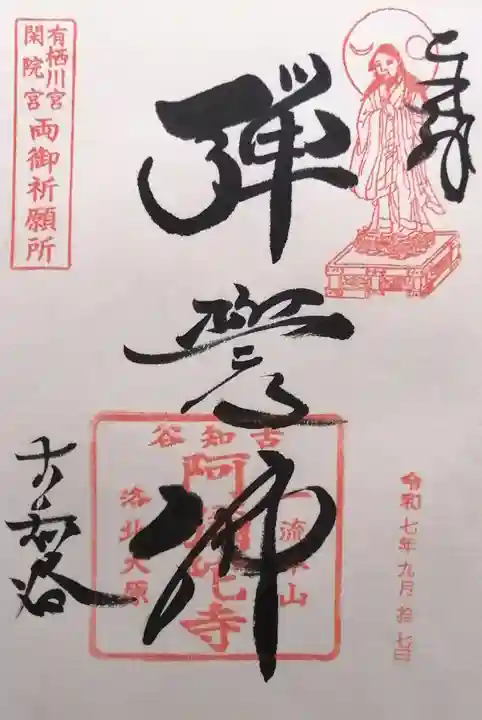 奉拝
有栖川宮
閑院宮
両御祈願所
弾誓佛
古知谷
一流本山
阿弥陀寺
洛北大原
令和七年九月拾七日
古知谷